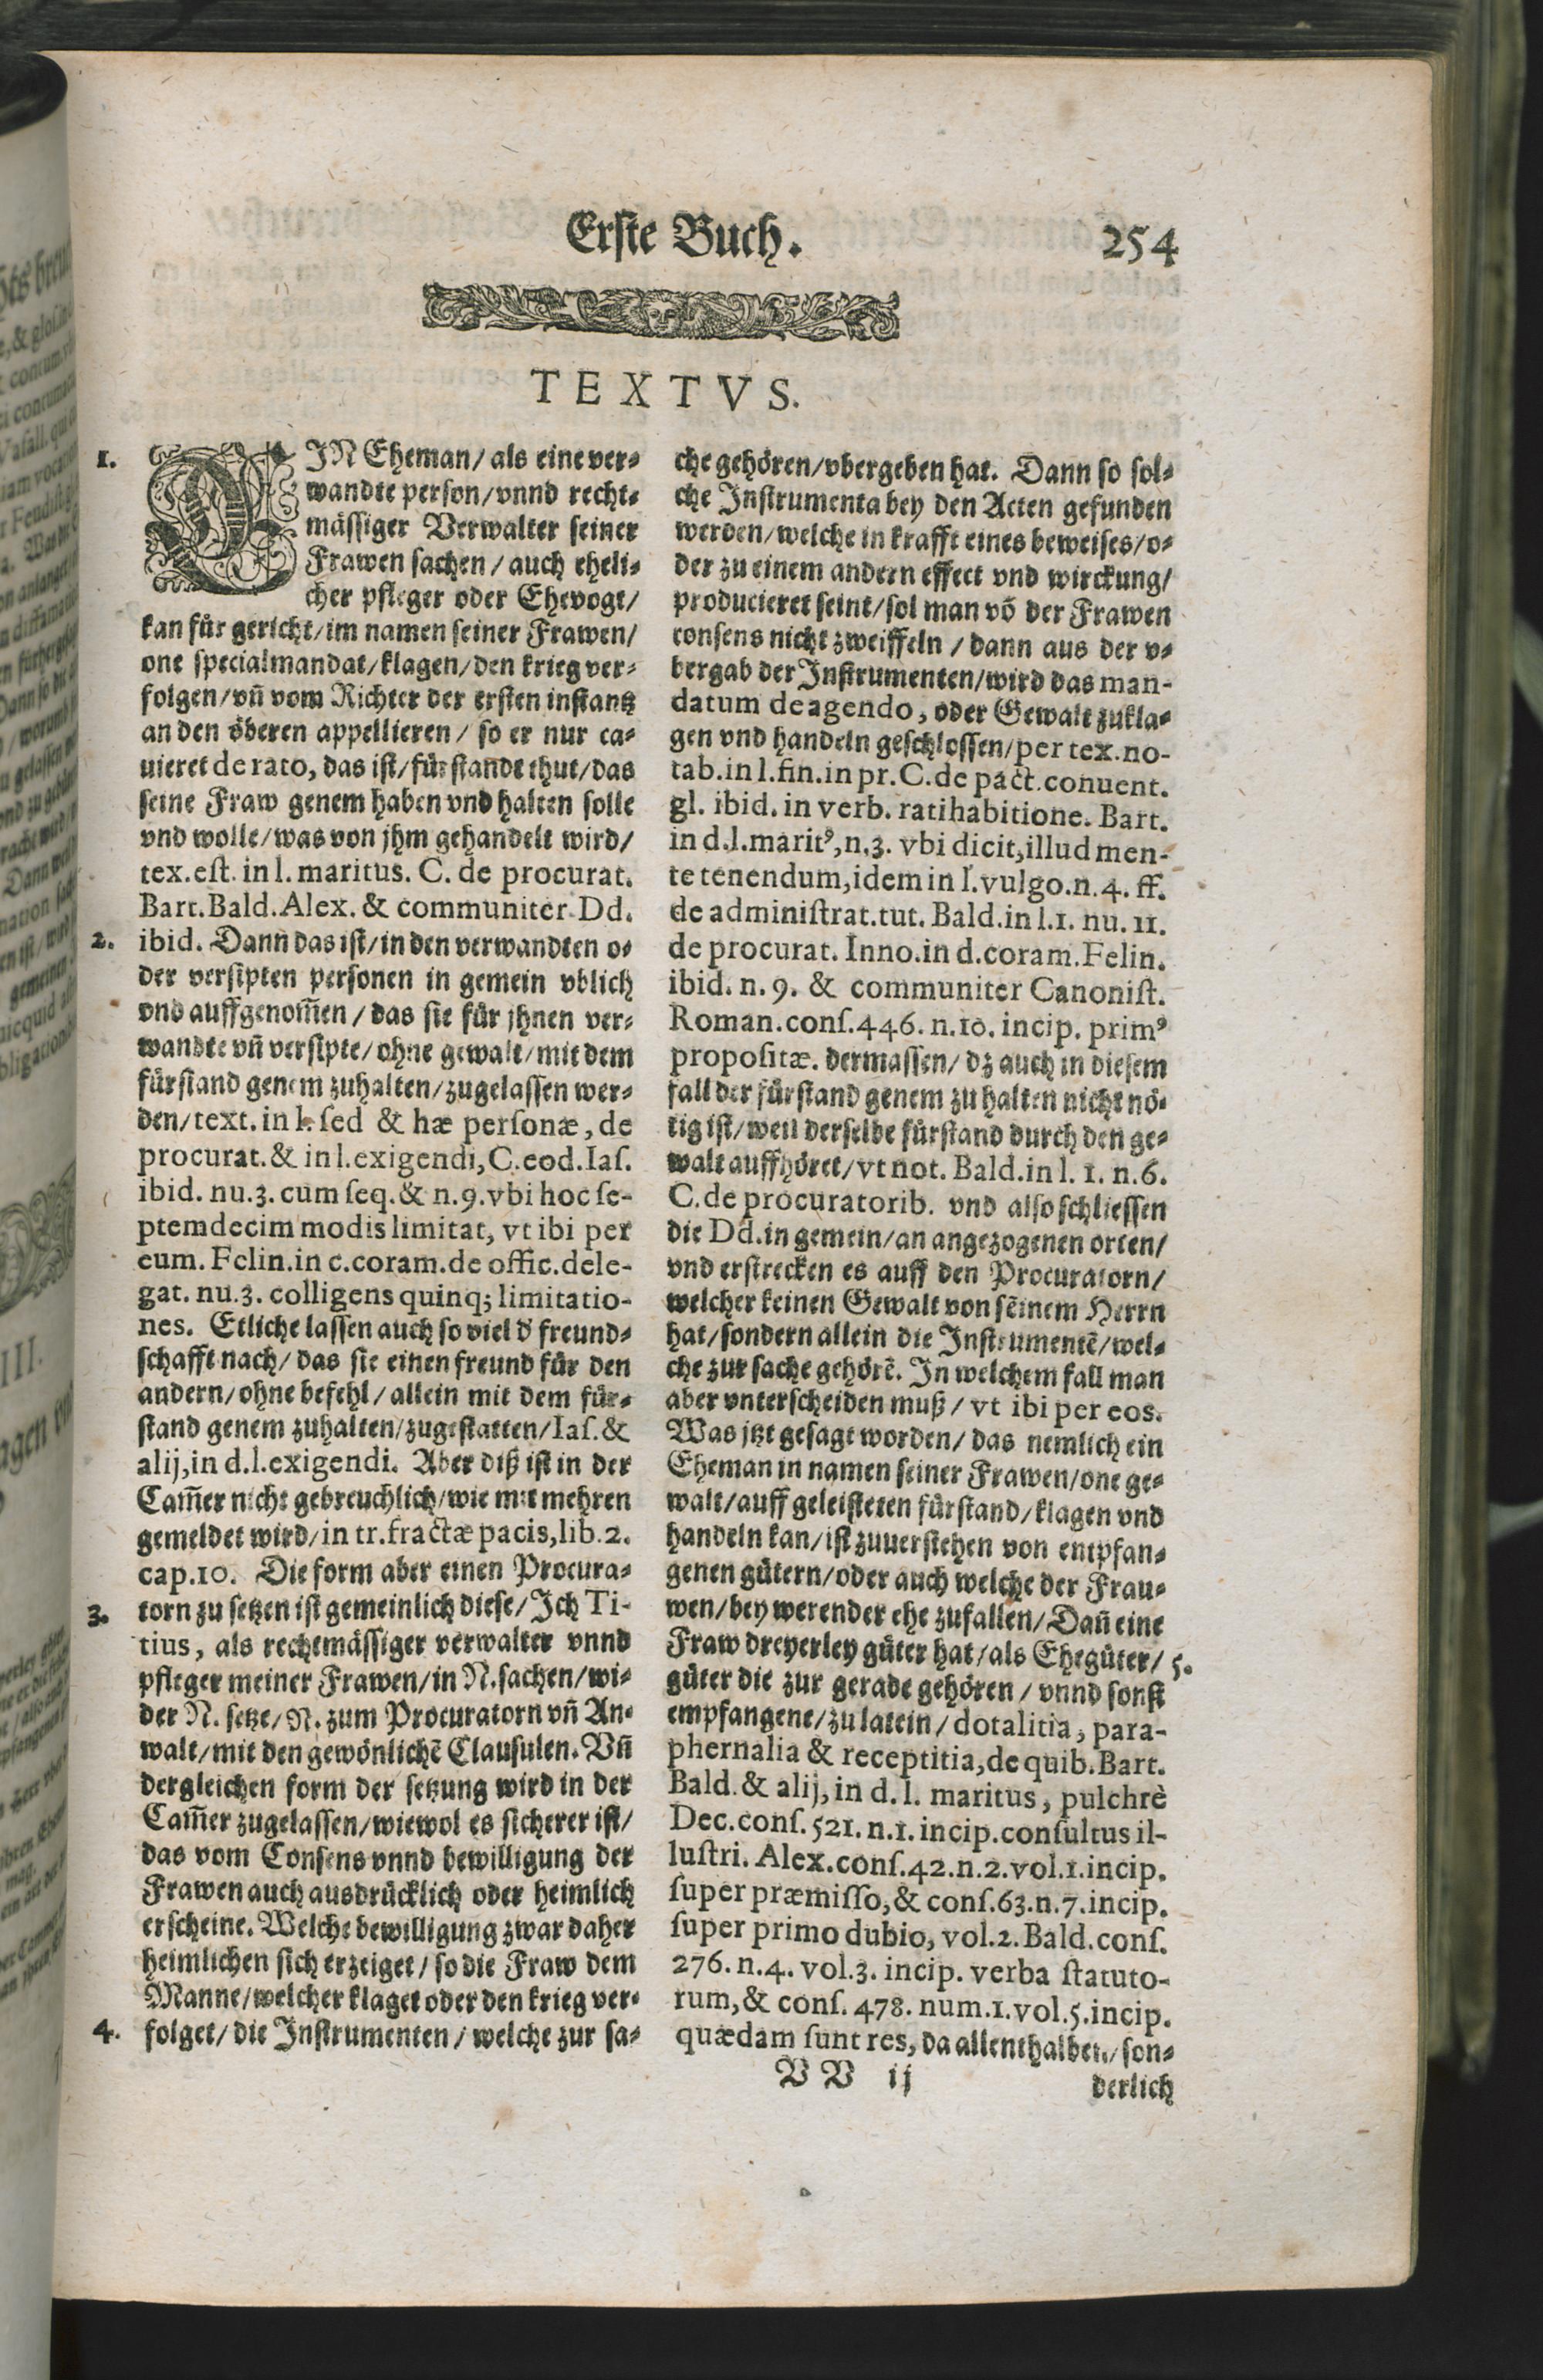 Erste Buch.
254
TEXTVS.
1.
EIN Eheman/ als eine ver⸗
wandte person/vnnd recht⸗
mässiger Verwalter seiner
Frawen sachen/ auch eheli⸗
cher pfleger oder Ehevogt/
kan für gericht/im namen seiner Frawen/
one specialmandat/klagen/den krieg ver⸗
folgen/vñ vom Richter der ersten instantz
an den öberen appellieren/ so er nur ca⸗
uieret de rato, das ist/fürstandt thut/das
seine Fraw genem haben vnd halten solle
vnd wolle/was von jhm gehandelt wird/
tex. est. in l. maritus. C. de procurat.
Bart. Bald. Alex. & communiter Dd.
2.
ibid. Dann das ist/in den verwandten o⸗
der versipten personen in gemein vblich
vnd auffgenom̃en/ das sie für jhnen ver⸗
wandte vñ versipte/ohne gewalt/mit dem
fürstand genem zuhalten/zugelassen wer⸗
den/text. in l. ſed & hæ perſonæ, de
procurat. & in l. exigendi, C. eod. Iaſ.
ibid. nu.3. cum ſeq. & n.9. vbi hoc ſe-
ptemdecim modis limitat, vt ibi per
eum. Felin. in c. coram. de offic. dele-
gat. nu.3. colligens quinq; limitatio-
nes. Etliche lassen auch so viel d' freund⸗
schafft nach/ das sie einen freund für den
andern/ohne befehl/allein mit dem für⸗
stand genem zuhalten/zugestatten/Iaſ. &
alij, in d.l. exigendi. Aber diß ist in der
Cam̃er nicht gebreuchlich/wie mit mehren
gemeldet wird/in tr. fractæ pacis, lib.2.
cap.10. Die form aber einen Procura⸗
3.
torn zu setzen ist gemeinlich diese/Jch Ti-
tius, als rechtmässiger verwalter vnnd
pfleger meiner Frawen/in N. sachen/wi⸗
der N. setze/N. zum Procuratorn vñ An⸗
walt/mit den gewönlichẽ Clausulen. Vñ
dergleichen form der setzung wird in der
Cam̃er zugelassen/wiewol es sicherer ist/
das vom Consens vnnd bewilligung der
Frawen auch ausdrücklich oder heimlich
erscheine. Welche bewilligung zwar daher
heimlichen sich erzeiget/ so die Fraw dem
Manne/welcher klaget oder den krieg ver⸗
4.
folget/die Jnstrumenten/welche zur sa⸗
che gehören/vbergeben hat. Dann so sol⸗
che Jnstrumenta bey den Acten gefunden
werden/welche in krafft eines beweises/o⸗
der zu einem andern effect vnd wirckung/
producieret seint/sol man võ der Frawen
consens nicht zweiffeln/ dann aus der v⸗
bergab der Jnstrumenten/wird das man-
datum de agendo, oder Gewalt zukla⸗
gen vnd handeln geschlossen/per tex. no-
tab. in l. fin. in pr. C. de pact. conuent.
gl. ibid. in verb. ratihabitione. Bart.
in d.l. maritꝰ, n.3. vbi dicit, illud men-
te tenendum, idem in l. vulgo. n.4. ff.
de adminiſtrat. tut. Bald. in l.1. nu. 11.
de procurat. Inno. in d. coram. Felin.
ibid. n. 9. & communiter Canoniſt.
Roman. conſ. 446. n. 10. incip. primꝰ
propoſitæ. dermassen/ dz auch in diesem
fall der fürstand genem zu halten nicht nö⸗
tig ist/weil derselbe fürstand durch den ge⸗
walt auffhöret/vt not. Bald. in l. 1. n.6.
C. de procuratorib. vnd also schliessen
die Dd. in gemein/an angezogenen orten/
vnd erstrecken es auff den Procuratorn/
welcher keinen Gewalt von seinem Herrn
hat/sondern allein die Jnstrumentẽ/wel⸗
che zur sache gehörẽ. Jn welchem fall man
aber vnterscheiden muß/ vt ibi per eos.
Was jtzt gesagt worden/ das nemlich ein
Eheman in namen seiner Frawen/one ge⸗
walt/auff geleisteten fürstand/klagen vnd
handeln kan/ist zuuerstehen von entpfan⸗
genen gütern/oder auch welche der Frau⸗
wen/bey werender ehe zufallen/Dañ eine
Fraw dreyerley güter hat/als Ehegüter/
5.
güter die zur gerade gehören/ vnnd sonst
empfangene/zu latein/dotalitia, para-
phernalia & receptitia, de quib. Bart.
Bald. & alij, in d. l. maritus, pulchrè
Dec. conſ. 521. n.1. incip. conſultus il-
luſtri. Alex. conſ. 42. n.2. vol.1. incip.
ſuper præmiſſo, & conſ. 63. n.7. incip.
ſuper primo dubio, vol.2. Bald. conſ.
276. n.4. vol.3. incip. verba ſtatuto-
rum, & conſ. 478. num.1. vol.5. incip.
quædam ſunt res, da allenthalben/son⸗
VV ij
derlich